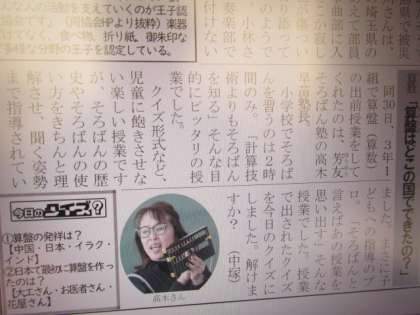 「算盤はどこの国でできたの?」
同30日、3年1
組で算盤(算数)
の出前授業をして
くれたのは、
そろばん塾の高木
早苗塾長。
小学校でそろば
んを習うのは2時
間のみ。「計算技
術よりもそろばん
を知る」そんな目
的にピッタリの授
業でした。
クイズ形式など、
児童に飽きさせな
い楽しい授業です
が、そろばんの歴
史やそろばんの使
い方をきちんと理
解させ、聞く姿勢
まで指導されてい
ました。まさに子
どもへの指導のプ
ロ。「そろばんと
言えばあの授業を
思い出す」そんな
授業でした。授業
で出されたクイズ
を今日のクイズに
しました。解けま
すか?(中塚)
高木さん
今日のクイズ?
①算盤の発祥は?
【中国・日本・イラク・
インド】
②日本で最初に算盤を作っ
たのは?
【大工さん・お医者さん・
花屋さん】
な人の活動を支えていくのが王子認
HPより抜粋)楽器
食べ物、折り紙、御朱印な
な分野の王子を認定している。
埼玉県の
えて部員
小林さ
り添って
のような
奏楽部で
付けない